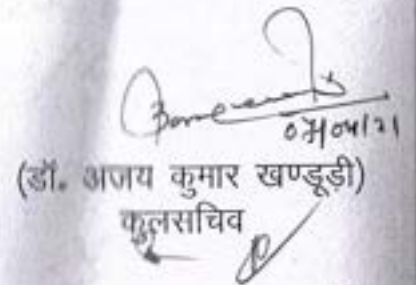 07/04/21
(डॉ. अजय कुमार खण्डूड़ी)
कुलसचिव